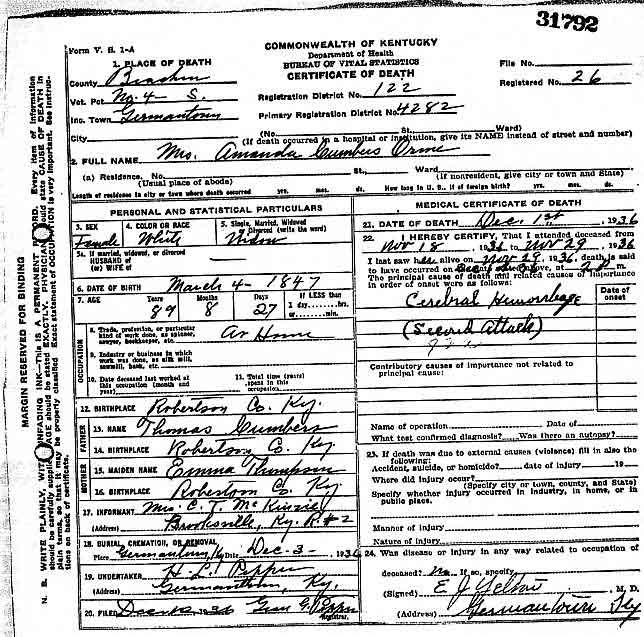 31792
Form V. S. 1-A
COMMONWEALTH OF KENTUCKY
Department of Health
BUREAU OF VITAL STATISTICS
CERTIFICATE OF DEATH
File No.
Registered No. 26
1. PLACE OF DEATH
County Bracken
Vot. Pct No. 4 - S.
Inc. Town Germantown
City
Registration District No. 122
Primary Registration District No. 4282
(No. St. Ward)
(If death occurred in a hospital or institution, give its NAME instead of street and number)
2. FULL NAME Mrs. Amanda Cumbers Orme
(a) Residence. No. St., Ward
(Usual place of abode) (If nonresident, give city or town and State)
Length of residence in city or town where death occurred yrs. mos. ds. How long in U. S., if of foreign birth? yrs. mos. ds.
PERSONAL AND STATISTICAL PARTICULARS
3. SEX Female
4. COLOR OR RACE White
5. Single, Married, Widowed or Divorced (write the word) Widow
5a. If married, widowed, or divorced
HUSBAND of
(or) WIFE of
6. DATE OF BIRTH March 4 - 1847
7. AGE Years 89 Months 8 Days 27 If LESS than 1 day hrs. or min.
OCCUPATION
8. Trade, profession, or particular
kind of work done, as spinner,
sawyer, bookkeeper, etc. At Home
9. Industry or business in which
work was done, as silk mill,
sawmill, bank, etc.
10. Date deceased last worked at
this occupation (month and
year)
11. Total time (years)
spent in this
occupation
12. BIRTHPLACE Robertson Co. Ky.
FATHER
13. NAME Thomas Cumbers
14. BIRTHPLACE Robertson Co. Ky.
MOTHER
15. MAIDEN NAME Emma Thompson
16. BIRTHPLACE Robertson Co. Ky
17. INFORMANT Mrs. C. J. McKinzie
(Address) Brooksville, Ky. R #2
18. BURIAL, CREMATION, OR REMOVAL
Place Germantown, Ky Date Dec - 3 - 1936
19. UNDERTAKER H. L. Pepper
(Address) Germantown, Ky.
20. FILED 1936 Pepper
Registrar.
MEDICAL CERTIFICATE OF DEATH
21. DATE OF DEATH Dec. 1st, 1936
22. I HEREBY CERTIFY, That I attended deceased from
Nov 18, 1936 to Nov 29, 1936
I last saw her alive on Nov 29, 1936, death is said
to have occurred on above, at m.
The principal cause of death and related causes of importance
in order of onset were as follows:
Date of
onset
Cerebral Hemorrhage
(Second Attack)
Contributory causes of importance not related to
principal cause:
Name of operation Date of
What test confirmed diagnosis? Was there an autopsy?
23. If death was due to external causes (violence) fill in also the
following:
Accident, suicide, or homicide? date of injury 19
Where did injury occur?
(Specify city or town, county, and State)
Specify whether injury occurred in industry, in home, or in
public place.
Manner of injury
Nature of injury
24. Was disease or injury in any way related to occupation of
deceased? No If so, specify
(Signed) E J Yelton, M. D.
(Address) Germantown Ky
MARGIN RESERVED FOR BINDING
N. B. WRITE PLAINLY, WITH UNFADING INK—This is a PERMANENT RECORD. Every item of information
should be carefully supplied. AGE should be stated EXACTLY. PHYSICIANS should state CAUSE OF DEATH in
plain terms, so that it may be properly classified. Exact statement of OCCUPATION is very important. See instruc-
tions on back of certificate.